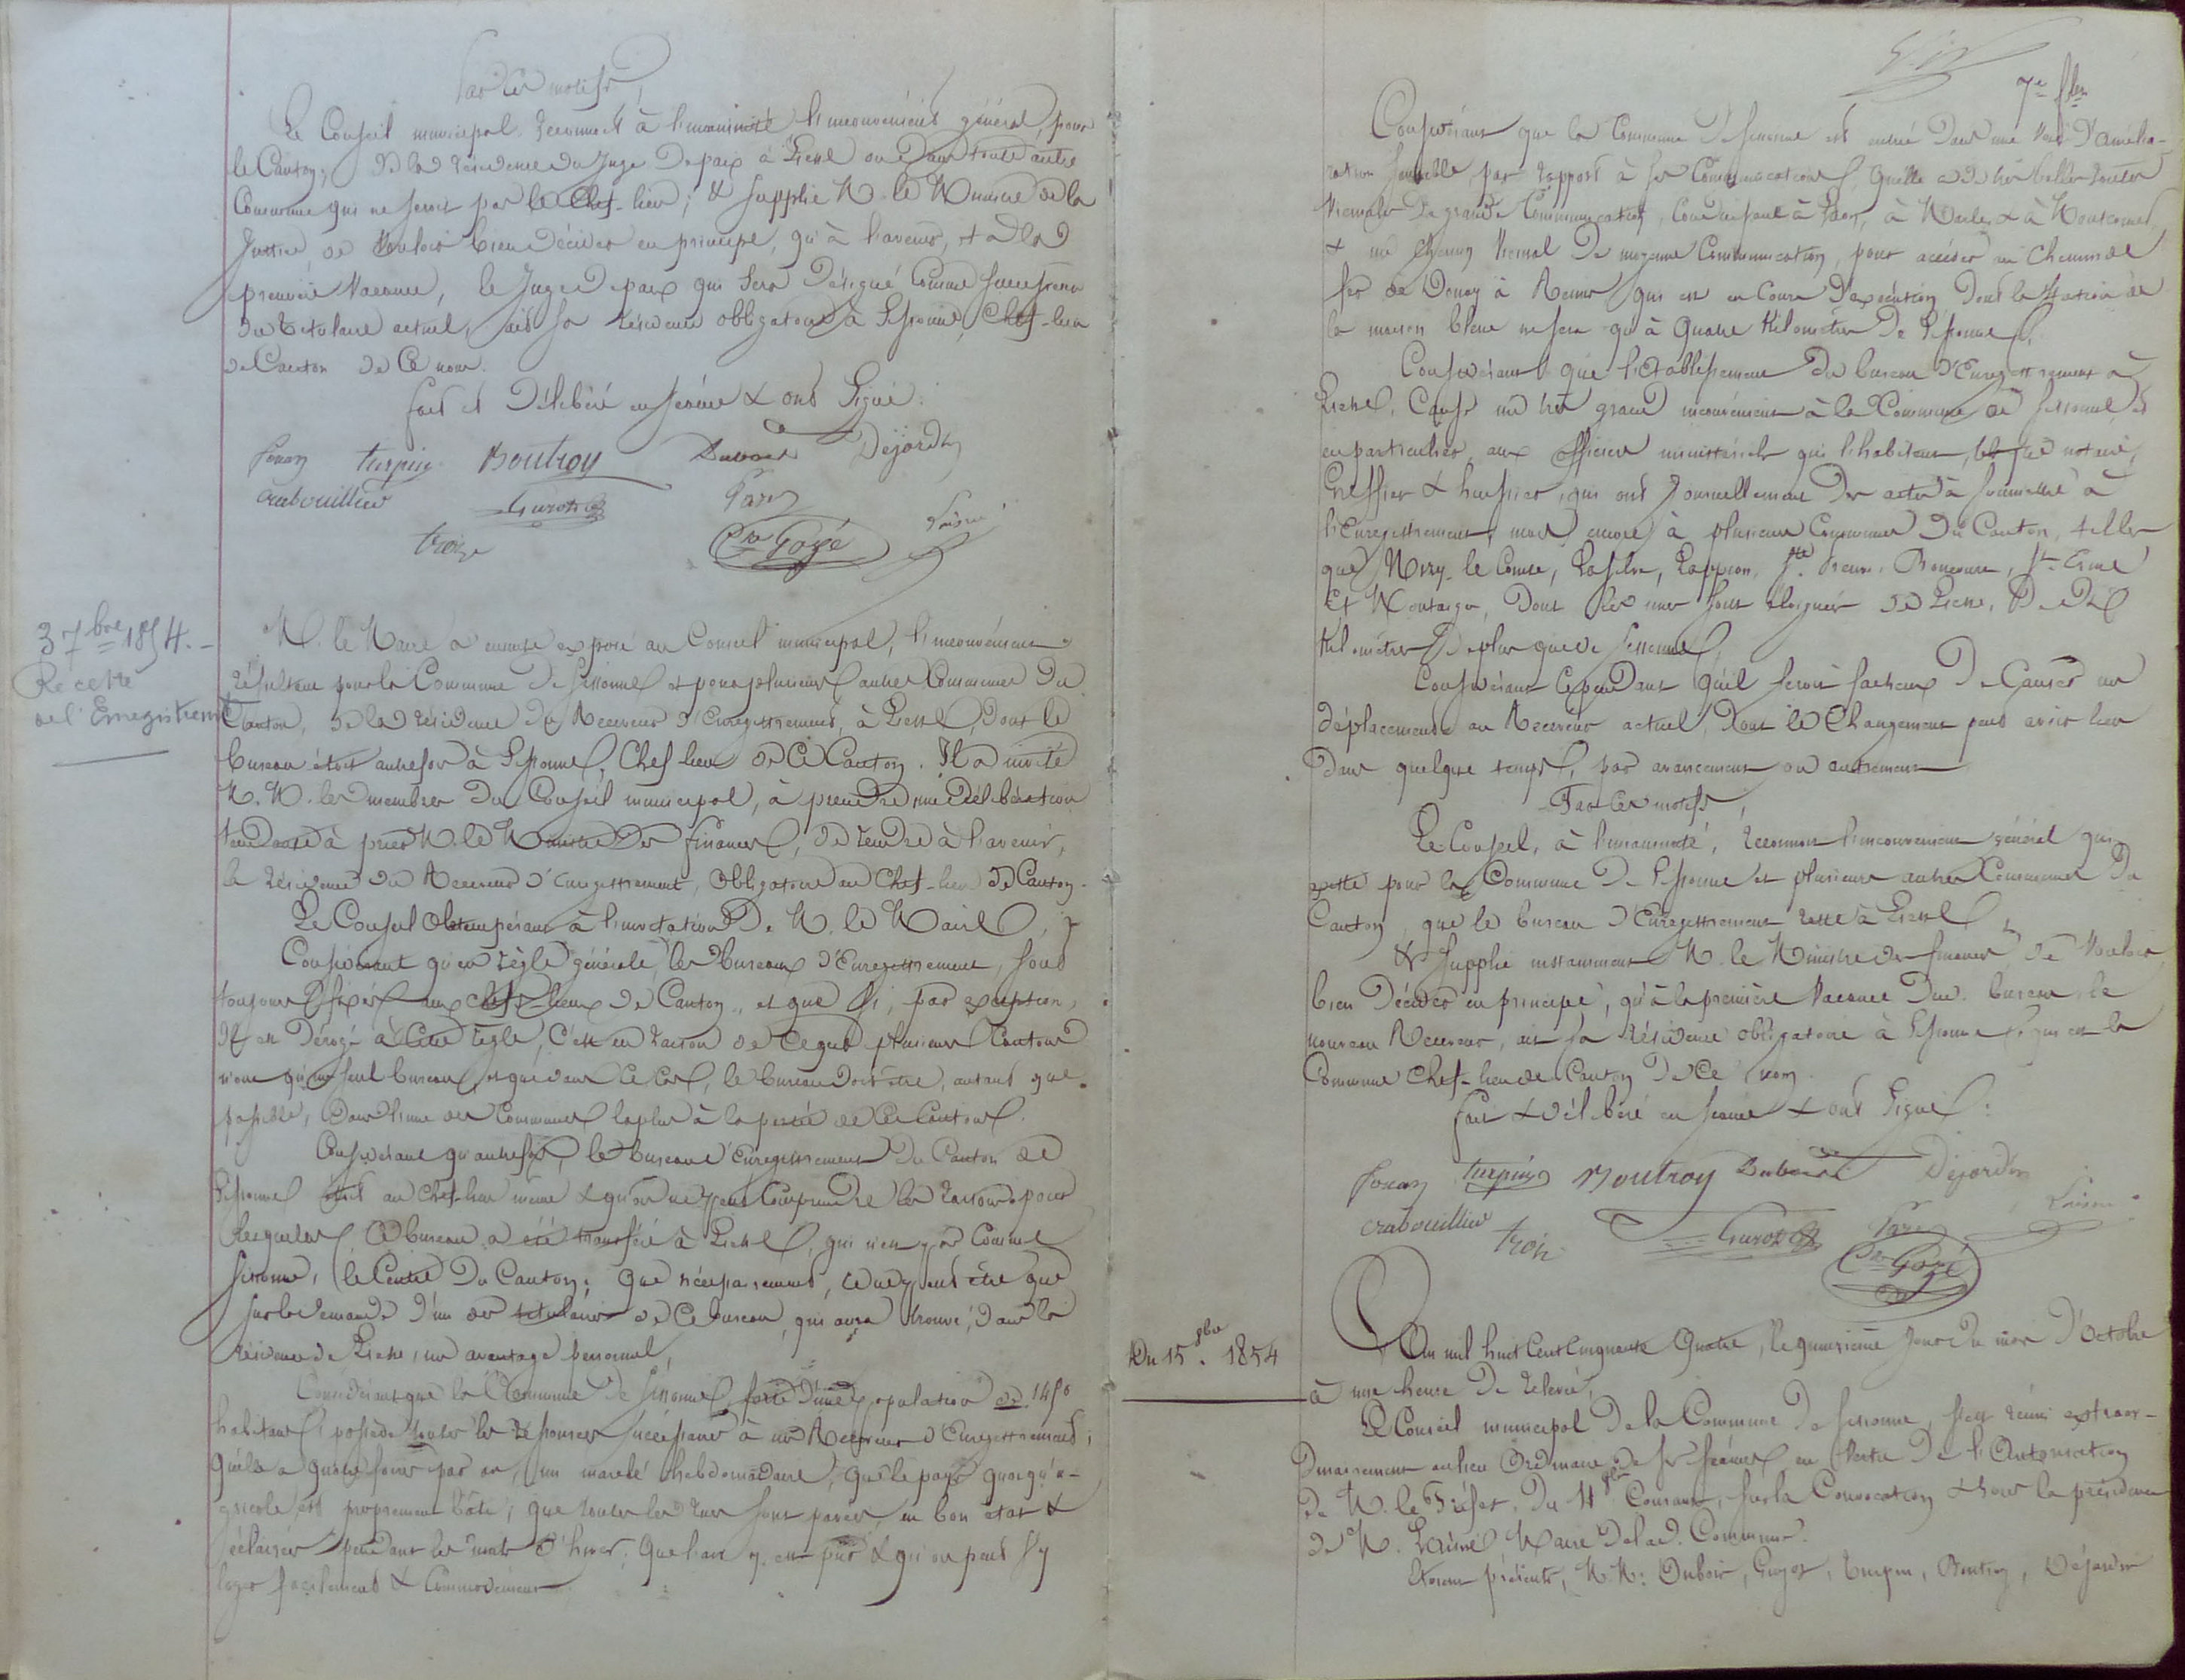 Par ces motifs,
Le Conseil municipal, reconnait à l'unanimité l'inconvénient général, pour
le Canton, de la résidence du Juge de paix à Liesse ou dans toute autre
Commune qui ne serait pas le Chef-lieu; & supplie M. le Ministre de la
Justice, de vouloir bien décider en principe, qu'à l'avenir, et à la
première vacance, le Juge de paix qui sera désigné comme successeur
du titulaire actuel, ait sa résidence obligatoire à Sissonne, Chef-lieu
de Canton de ce nom.
fait et délibéré en séance & ont signé:
turpin Boutroy Dubois Dejardin
crabouillier Guyot
troiz Goyé
37bre 1854.-
Recette
de l'Enregistremt
M. le Maire a ensuite exposé au Conseil municipal, l'inconvénient
résultant pour la Commune de Sissonne et pour plusieurs autres Communes du
Canton, de la résidence du Receveur d'Enregistrement, à Liesse, dont le
bureau était autrefois à Sissonne, Chef lieu de ce Canton. Il a invité
M.M. les membres du Conseil municipal, à prendre une délibération
tendante à prier M. le Ministre des finances, de rendre à l'avenir,
la résidence du Receveur d'Enregistrement, obligatoire au Chef-lieu de Canton.
Le Conseil obtempérant à l'invitation de M. le Maire,
Considérant qu'en règle générale, les bureaux d'Enregistrement, sont
toujours fixés aux chefs-lieux de Canton, et que si, par exception,
il est dérogé à cette règle, c'est en raison de ce que plusieurs Cantons
n'ont qu'un seul bureau, et que dans ce cas, le bureau doit être, autant que
possible, dans l'une des Communes la plus à la portée de ces Cantons.
Considérant qu'autrefois, le bureau d'Enregistrement du Canton de
Sissonne était au chef-lieu même & qu'on ne peut comprendre les raisons pour
lesquelles ce bureau a été transféré à Liesse, qui n'est pas comme
Sissonne, le Centre du Canton; que nécessairement, ce ne peut être que
sur la demande d'un des titulaires de ce bureau, qui aura trouvé, dans la
résidence de Liesse, un avantage personnel,
Considérant que la Commune de Sissonne, forte d'une population de 1450
habitants, possède toutes les ressources nécessaires à un Receveur d'Enregistrement;
qu'elle a quatre foires par an, un marché hebdomadaire, que le pays quoiqu'a-
gricole est proprement bâti; que toutes les rues sont pavées, en bon état &
éclairées pendant les mois d'hiver; que l'air y est pur & qu'on peut s'y
loger facilement & commodément.
7e fllet
Considérant que la Commune de Sissonne est entrée dans une voie d'amélio-
ration sensible, par rapport à ses Communications, qu'elle a de très belles routes
vicinales de grande Communication, conduisant à Laon, à Marle & à Montcornet
& un chemin vicinal de moyenne Communication, pour accéder au chemin de
fer de Douay à Reims qui est en cours d'exécution dont la station de
la maison bleue ne sera qu'à quatre Kilomètres de Sissonne.
Considérant que l'établissement du bureau d'Enregistrement à
Liesse, cause un très grand inconvénient à la Commune de Sissonne et
en particulier aux officiers ministériels qui l'habitent, tels que notaire,
Greffier & huissier, qui ont journellement des actes à soumettre à
l'Enregistrement, mais encore à plusieurs Communes du Canton, telles
que Nizy-le Comte, Laselve, Lappion, Ste Preuve, Boncourt, St Erme
et Montaigu, dont les unes sont éloignées de Liesse, de dix
Kilomètres de plus que de Sissonne.
Considérant cependant qu'il serait facheux de causer un
déplacement au Receveur actuel, dont le changement peut avoir lieu
dans quelque temps, par avancement ou autrement
Par ces motifs,
Le Conseil, à l'unanimité, reconnait l'inconvénient général qui
existe pour la Commune de Sissonne et plusieurs autres Communes du
Canton, que le bureau d'Enregistrement reste à Liesse,
& supplie instamment M. le Ministre des finances de vouloir
bien décider en principe, qu'à la première vacance dud. bureau, le
nouveau Receveur, ait sa résidence obligatoire à Sissonne, qui est la
Commune chef-lieu de Canton de ce nom.
fait & délibéré en séance & ont signé:
turpin Boutroy Dubois Dejardin
crabouillier troiz Guyot
Goyé
Du 15 8bre 1854
L'an mil huit Cent Cinquante Quatre, le quinzième jour du mois d'Octobre
à une heure de relevée,
Le Conseil municipal de la Commune de Sissonne, s'est réuni extraor-
dinairement au lieu ordinaire de ses séances en vertu de l'autorisation
de M. le Préfet, du 11 Courant, sur la Convocation & sous la présidence
de M. Maire de lad. Commune.
Etaient présents, M.M: Dubois, Guyot, Turpin, Boutroy, Dejardin